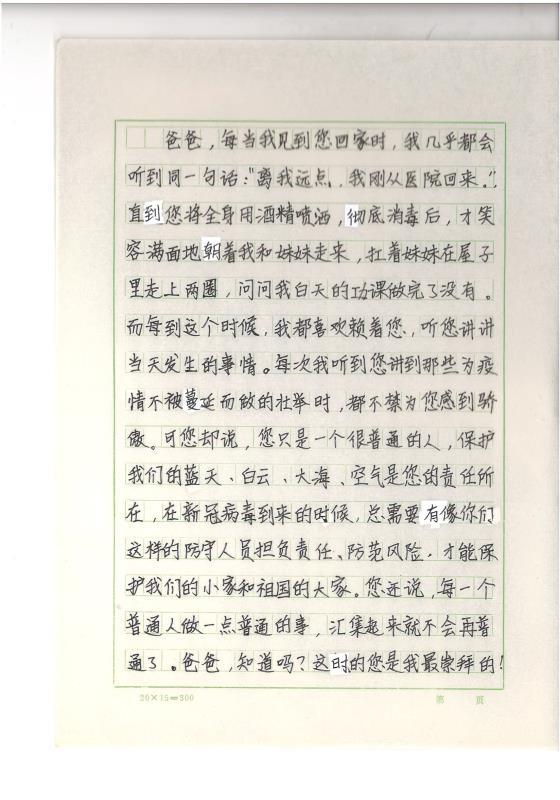 爸爸，每当我见到您回家时，我几乎都会
听到同一句话：“离我远点，我刚从医院回来。”
直到您将全身用酒精喷洒，彻底消毒后，才笑
容满面地朝着我和妹妹走来，扛着妹妹在屋子
里走上两圈，问问我白天的功课做完了没有。
而每到这个时候，我都喜欢赖着您，听您讲讲
当天发生的事情。每次我听到您讲到那些为疫
情不被蔓延而做的壮举时，都不禁为您感到骄
傲。可您却说，您只是一个很普通的人，保护
我们的蓝天、白云、大海、空气是您的责任所
在，在新冠病毒到来的时候，总需要有像你们
这样的防守人员担负责任、防范风险，才能保
护我们的小家和祖国的大家。您还说，每一个
普通人做一点普通的事，汇集起来就不会再普
通了。爸爸，知道吗？这时的您是我最崇拜的！
20×15=300
第 页